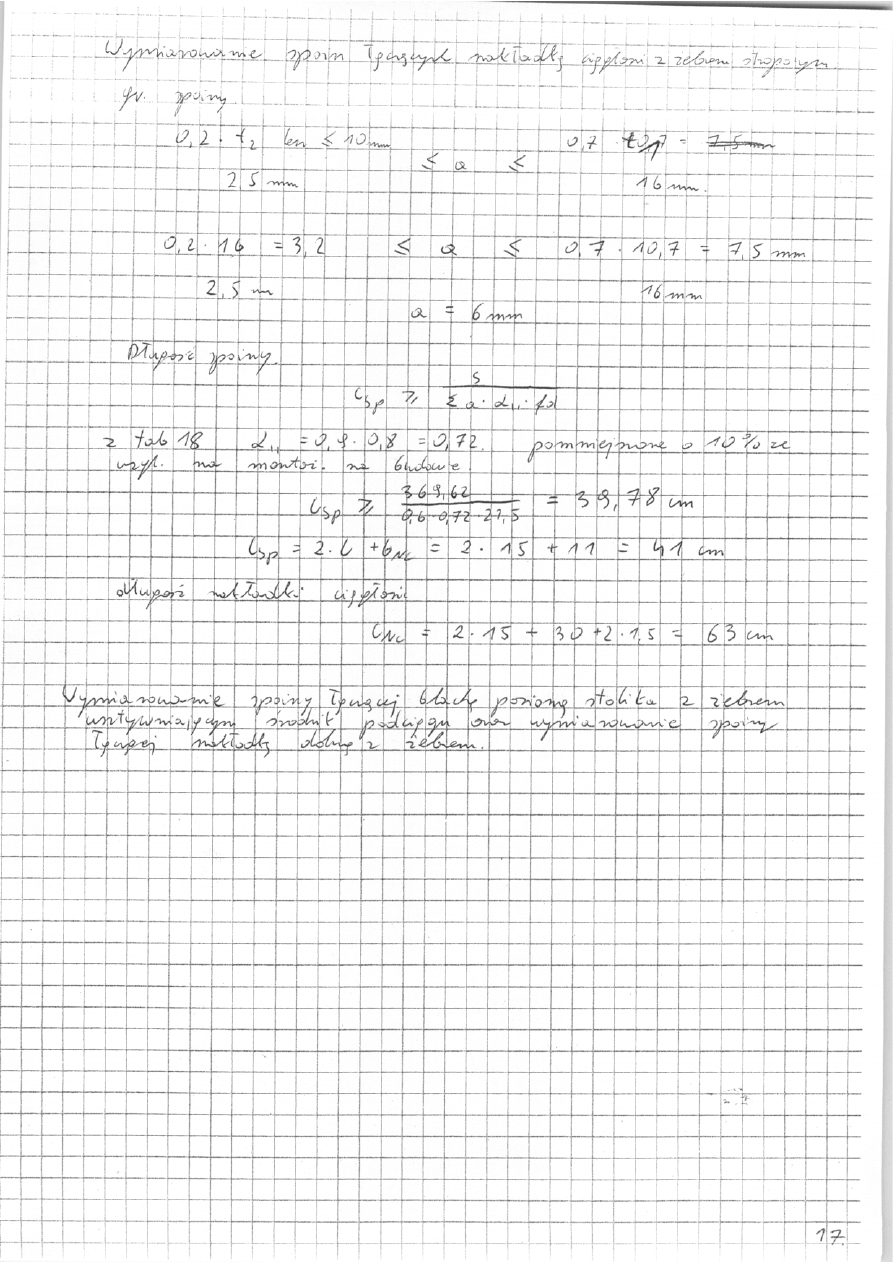 Wymiarowanie spoin łączących nakładkę ciągłości z żebrem stropowym
gr. spoiny
0,2 · t2 lecz ≤ 10 mm ≤ a ≤ 0,7 · t1 = 7,5 mm
2,5 mm 16 mm.
0,2 · 16 = 3,2 ≤ a ≤ 0,7 · 10,7 = 7,5 mm
2,5 m 16 mm
a = 6 mm
Długość spoiny.
lsp ≥ S / Σ a · α⊥ · fd
z tab 18 α⊥ = 0,9 · 0,8 = 0,72. pomniejszone o 10% ze
wzgl. na montaż. na budowie.
lsp ≥ 369,62 / 0,6 · 0,72 · 21,5 = 39,78 cm
lsp = 2 · l + bNc = 2 · 15 + 11 = 41 cm
długość nakładki ciągłości
lNc = 2 · 15 + 30 + 2 · 1,5 = 63 cm
Wymiarowanie spoiny łączącej blachę poziomą stolika z żebrem
usztywniającym środnik podciągu oraz wymiarowanie spoiny
łączącej nakładkę dolną z żebrem.
17.